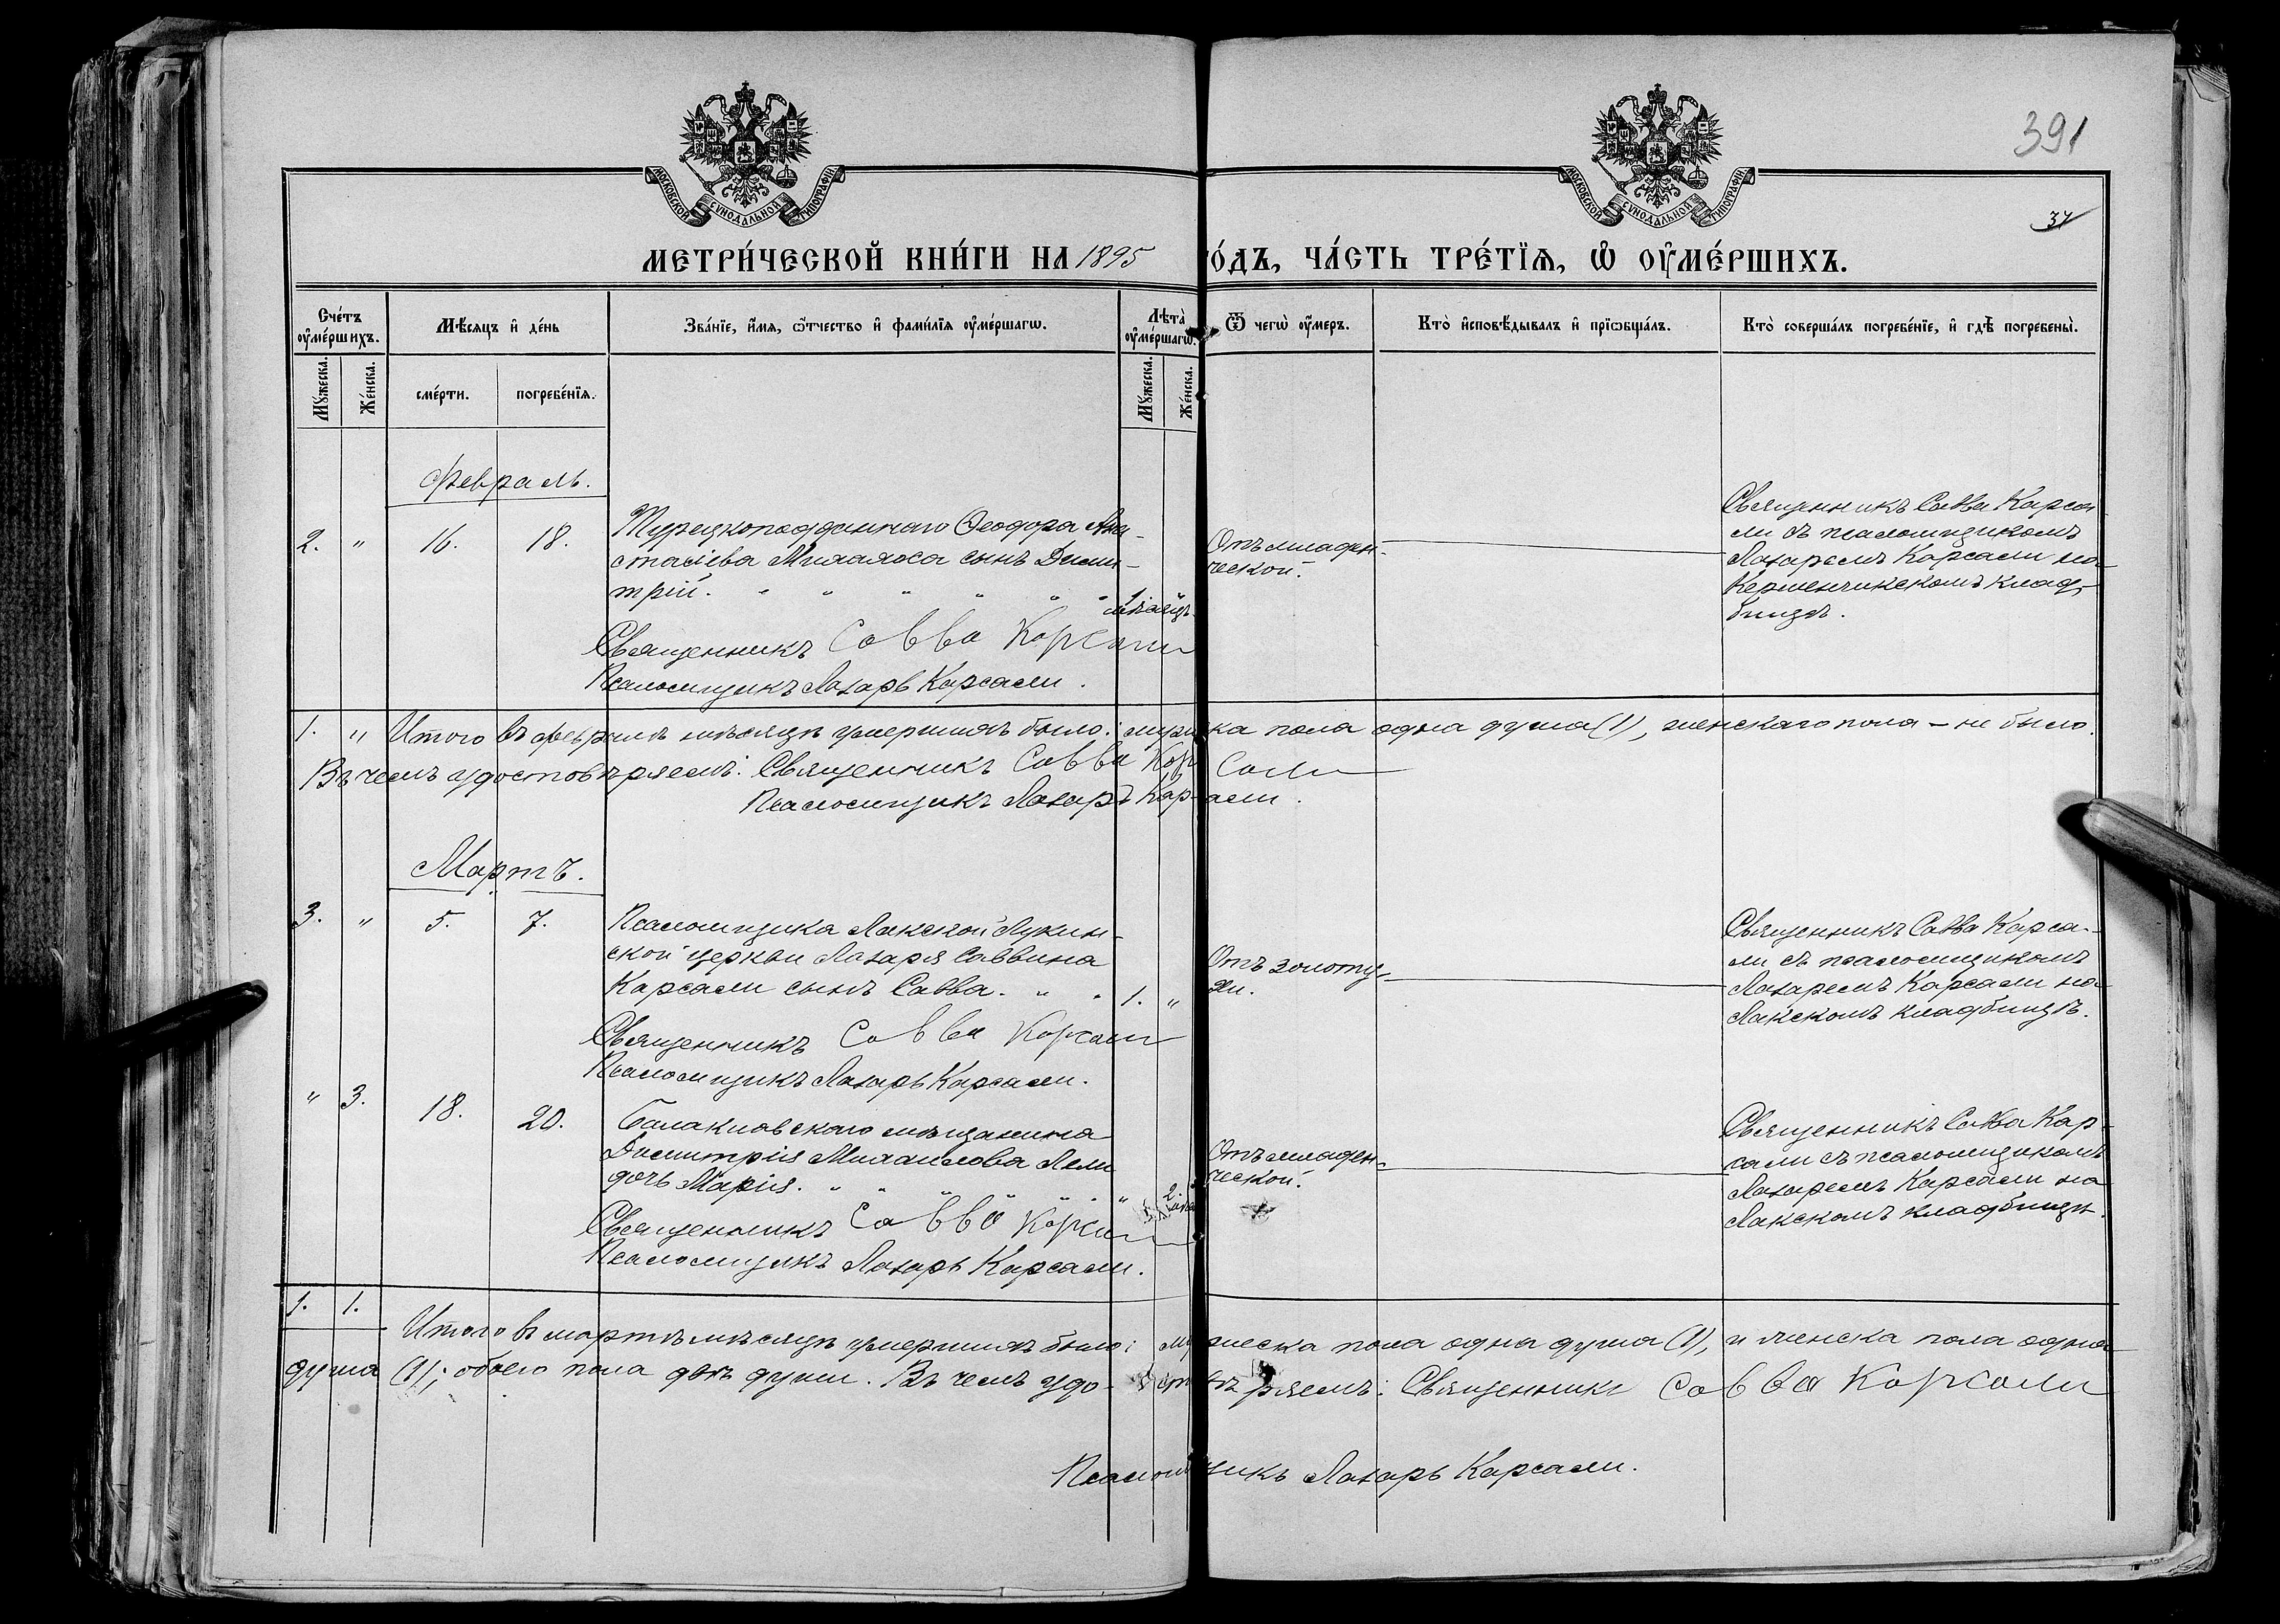 391
37
МОСКОВСКОЙ СѴНОДАЛЬНОЙ ТИПОГРАФІИ
МОСКОВСКОЙ СѴНОДАЛЬНОЙ ТИПОГРАФІИ
МЕТРИ́ЧЕСКОЙ КНИ́ГИ НА 1895 ГО́ДЪ, ЧА́СТЬ ТРЕ́ТІѦ, Ѡ ОУМЕ́РШИХЪ.
Сче́тъ оумершихъ.
Мѣсяцъ и день
Званіе, имя, отчество и фамилія оумершагѡ.
Лѣта оумершагѡ.
Ѿ чегѡ оумеръ.
Кто исповѣдывалъ и пріѡбщалъ.
Кто совершалъ погребеніе, и гдѣ погребены.
Мужеска.
Женска.
смерти.
погребенія.
Мужеска.
Женска.
Февраль.
2. " 16. 18.
Турецкоподданнаго Ѳеодора Ана-
стасіева Михаилоса сынъ Дими-
трій. " " " " " " 1 мѣсяцъ.
Отъ младен-
ческой.
Священникъ Савва Карса-
ли съ псаломщикомъ
Лазаремъ Карсали на
Керменчикскомъ клад-
бищѣ.
Священникъ Савва Карсали
Псаломщикъ Лазарь Карсали.
1. " Итого въ февралѣ мѣсяцѣ умершихъ было: мужска пола одна душа (1), женскаго пола – не было.
Въ чемъ удостовѣряемъ: Священникъ Савва Карсали
Псаломщикъ Лазарь Карсали.
Мартъ.
3. " 5. 7.
Псаломщика Лакской Лукин-
ской церкви Лазаря Саввина
Карсали сынъ Савва. " " 1. "
Отъ золоту-
хи.
Священникъ Савва Карса-
ли съ псаломщикомъ
Лазаремъ Карсали на
Лакскомъ кладбищѣ.
Священникъ Савва Карсали
Псаломщикъ Лазарь Карсали.
" 3. 18. 20.
Балаклавскаго мѣщанина
Димитрія Михаилова Лели
дочь Марія. " " " " " " 2
Отъ младен-
ческой.
Священникъ Савва Кар-
сали съ псаломщикомъ
Лазаремъ Карсали на
Лакскомъ кладбищѣ.
Священникъ Савва Карсали
Псаломщикъ Лазарь Карсали.
1. 1.
Итого въ мартѣ мѣсяцѣ умершихъ было: мужеска пола одна душа (1), и женска пола одна
душа (1); обоего пола двѣ души. Въ чемъ удостовѣряемъ: Священникъ Савва Карсали
Псаломщикъ Лазарь Карсали.